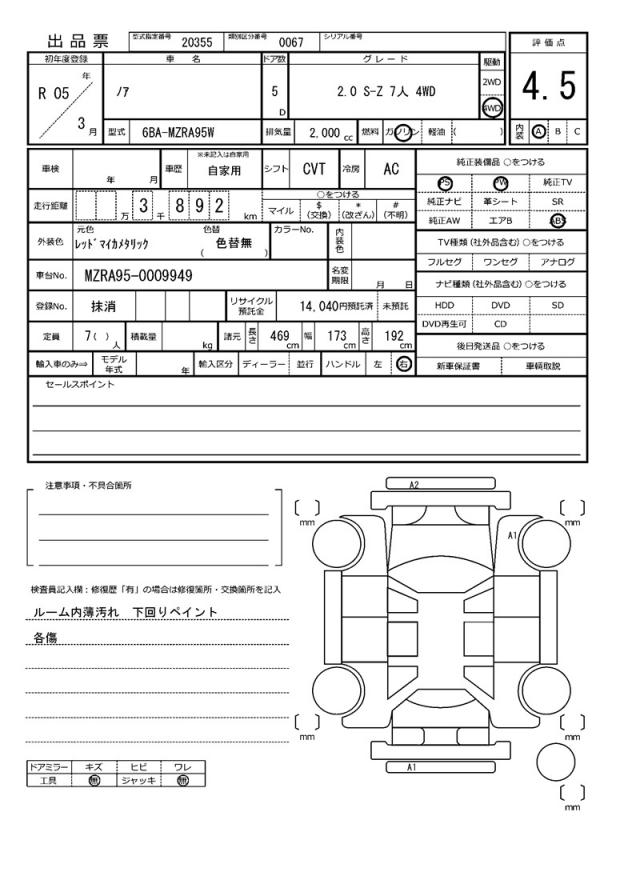 出品票 型式指定番号 20355 類別区分番号 0067 シリアル番号
評価点
初年度登録 車名 ドア数 グレード 駆動
R 05 年 3 月 ノア 5 D 2.0 S-Z 7人 4WD 2WD 4WD
4.5
型式 6BA-MZRA95W 排気量 2,000 cc 燃料 ガソリン 軽油 ( )
内装 A B C
車検 年 月 車歴 ※未記入は自家用 自家用 シフト CVT 冷房 AC
純正装備品 ○をつける
PS PW 純正TV
純正ナビ 革シート SR
純正AW エアB ABS
走行距離 万 3 千 8 9 2 km
○をつける
マイル $ (交換) * (改ざん) # (不明)
外装色 元色 レッドマイカメタリック 色替 ( 色替無 ) カラーNo. 内装色
TV種類 (社外品含む) ○をつける
フルセグ ワンセグ アナログ
車台No. MZRA95-0009949 名変期限 月 日
ナビ種類 (社外品含む) ○をつける
HDD DVD SD
DVD再生可 CD
登録No. 抹消 リサイクル預託金 14,040円預託済 未預託
定員 7( ) 人 積載量 kg 諸元 長さ 469 cm 幅 173 cm 高さ 192 cm
後日発送品 ○をつける
新車保証書 車輌取説
輸入車のみ⇒ モデル年式 年 輸入区分 ディーラー 並行 ハンドル 左 右
セールスポイント
注意事項・不具合箇所
検査員記入欄：修復歴「有」の場合は修復箇所・交換箇所を記入
ルーム内薄汚れ 下回りペイント
各傷
ドアミラー キズ ヒビ ワレ
工具 無 ジャッキ 無
A2
A1
A1
mm
mm
mm
mm
mm